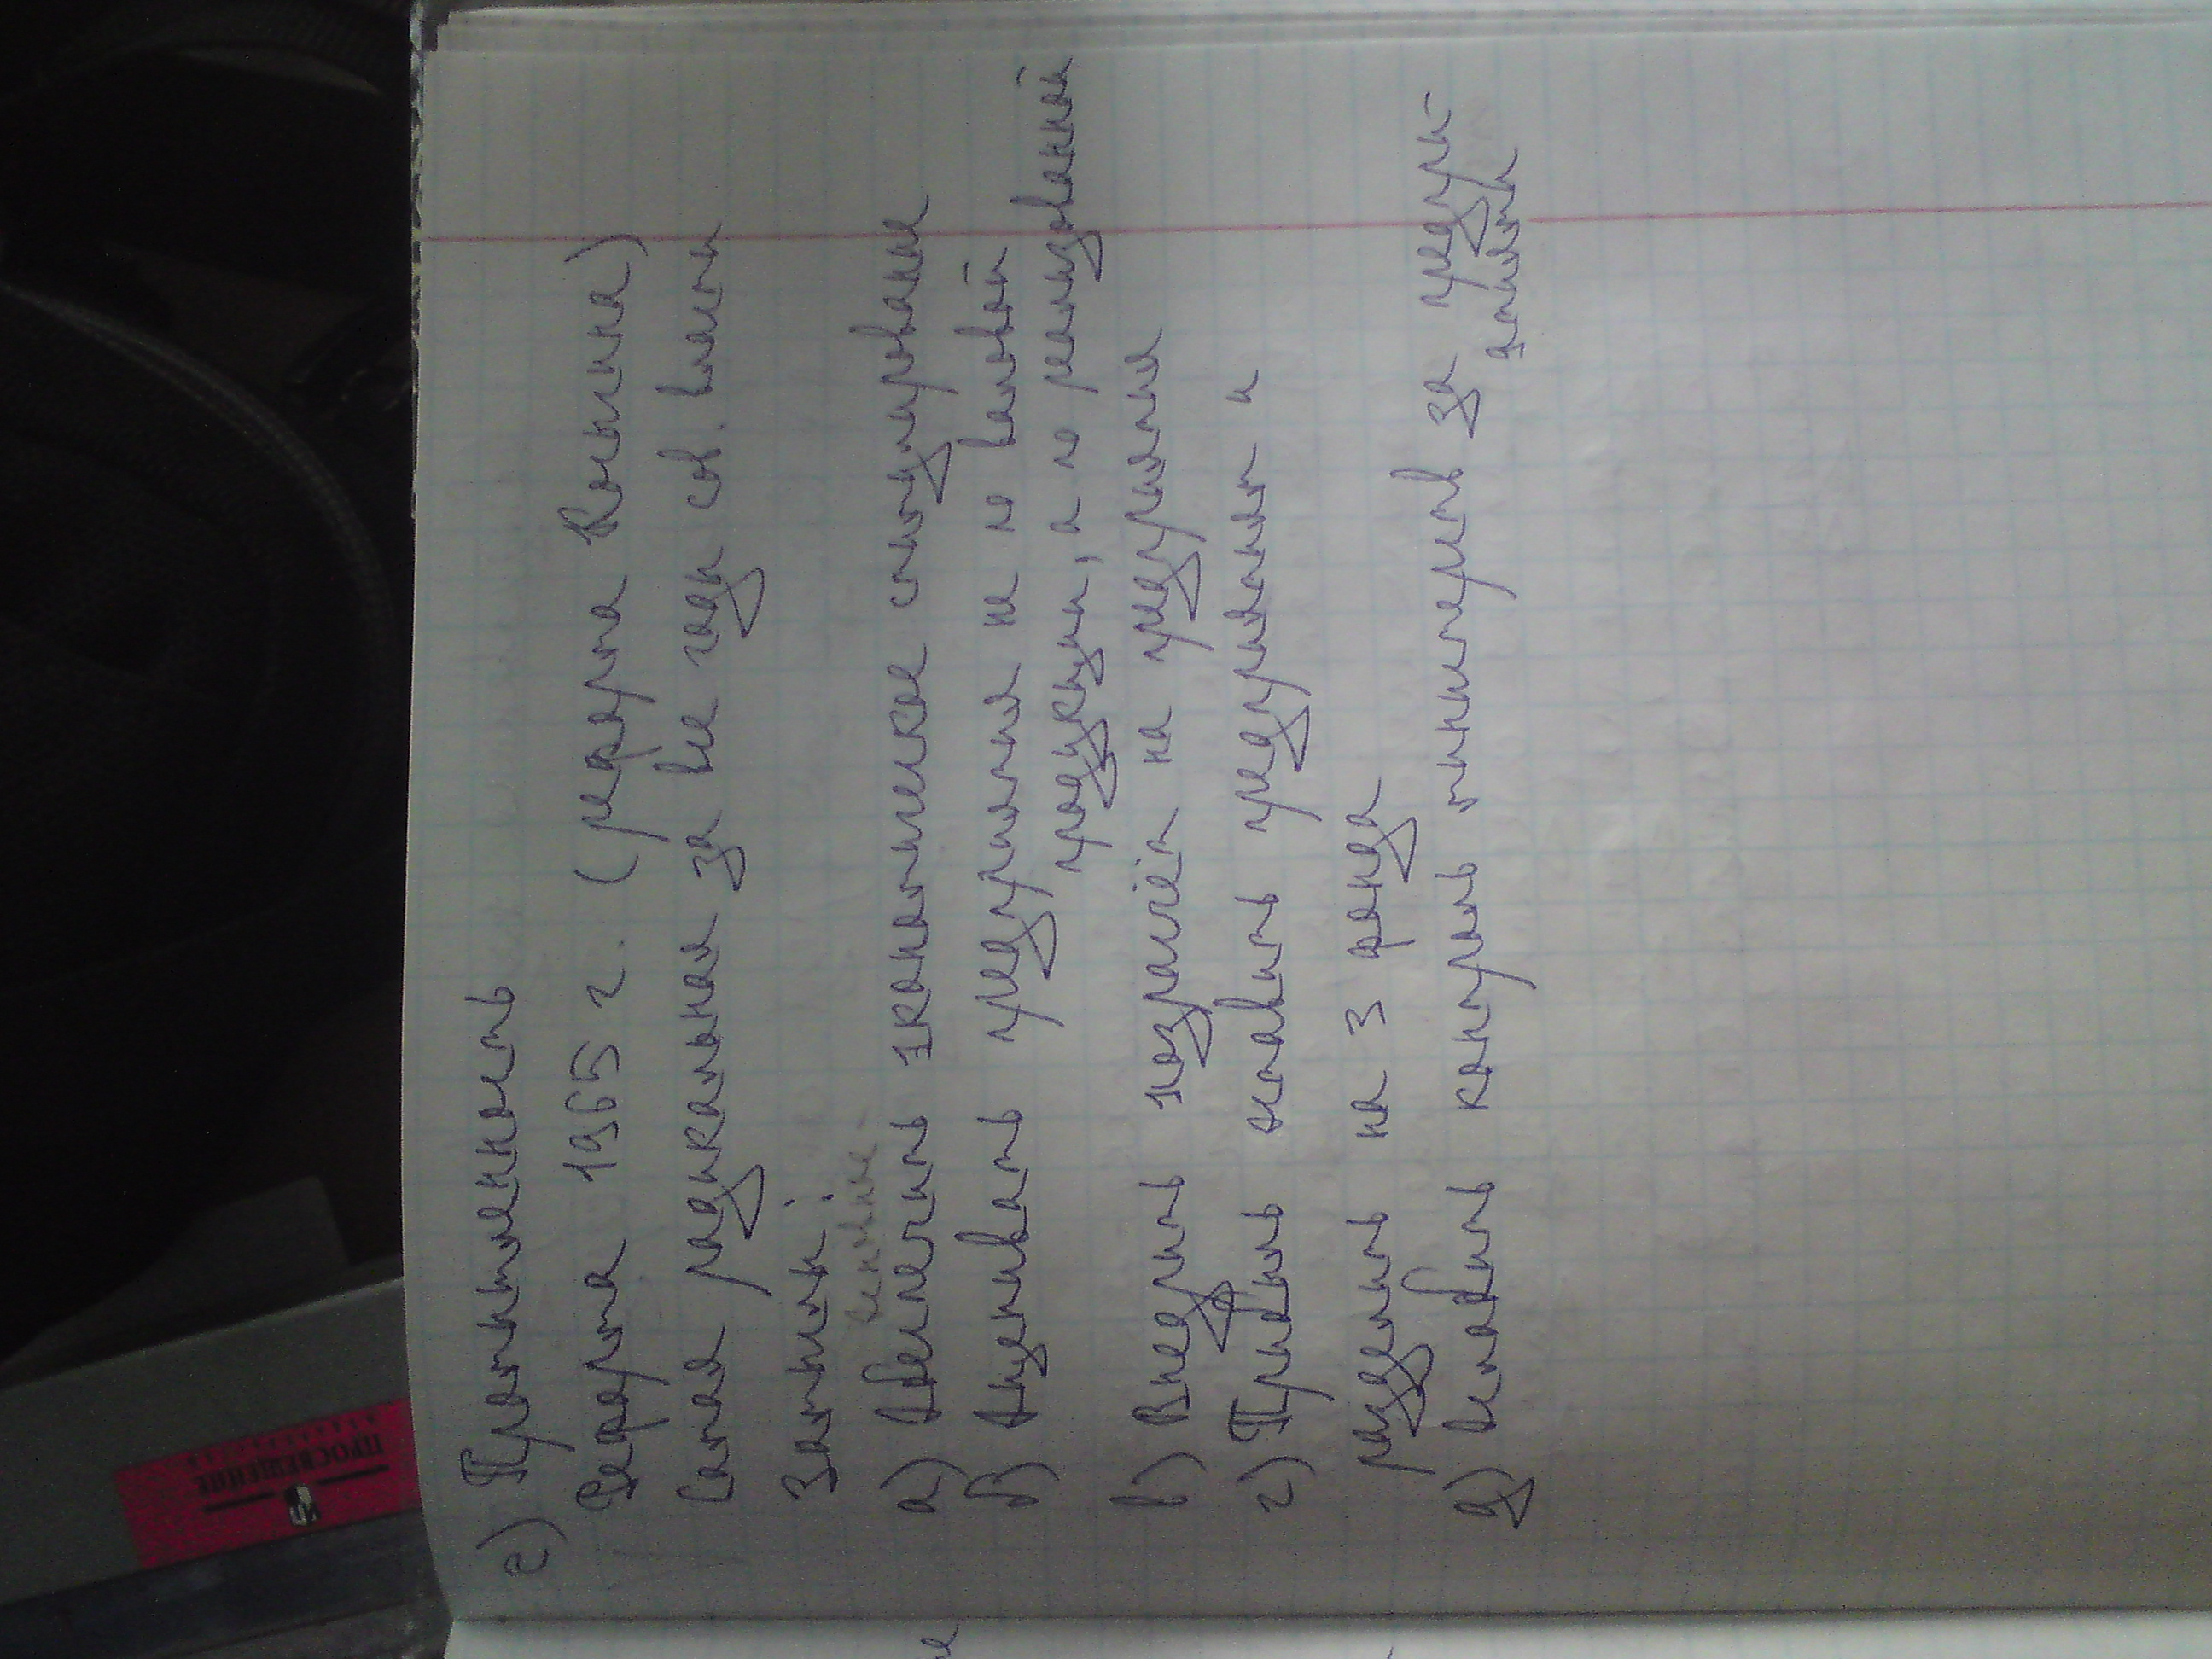 2) Промышленность
Реформа 1965 г. (реформа Косыгина)
Самая радикальная за все года сов. власти
Замысел:
а) Обеспечить экономическое стимулирование
б) Оценивать предприятия не по валовой
продукции, а по реализованной
в) Внедрить хозрасчёт на предприятия
г) Прибыль оставить предприятиям и
разделить на 3 фонда
д) Оставить контроль министерств за предпри-
ятиями
ПРОСВЕЩЕНИЕ